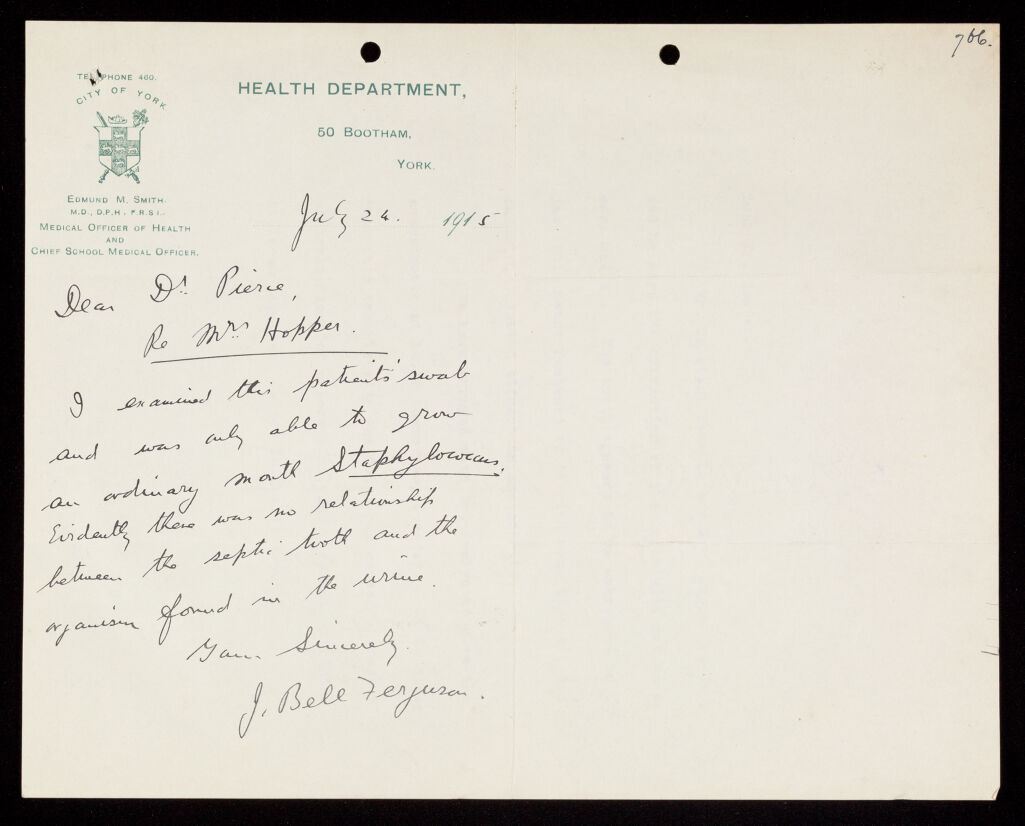 766.
TELEPHONE 460.
CITY OF YORK
HEALTH DEPARTMENT,
50 BOOTHAM,
YORK.
EDMUND M. SMITH.
M.D., D.P.H., F.R.S.I.,
MEDICAL OFFICER OF HEALTH
AND
CHIEF SCHOOL MEDICAL OFFICER.
July 24. 1915
Dear Dr. Pierce,
Re Mrs. Hopper.
I examined this patients' swab
and was only able to grow
an ordinary mouth Staphylococcus.
Evidently there was no relationship
between the septic tooth and the
organism found in the urine.
Yours Sincerely.
J. Bell Ferguson.